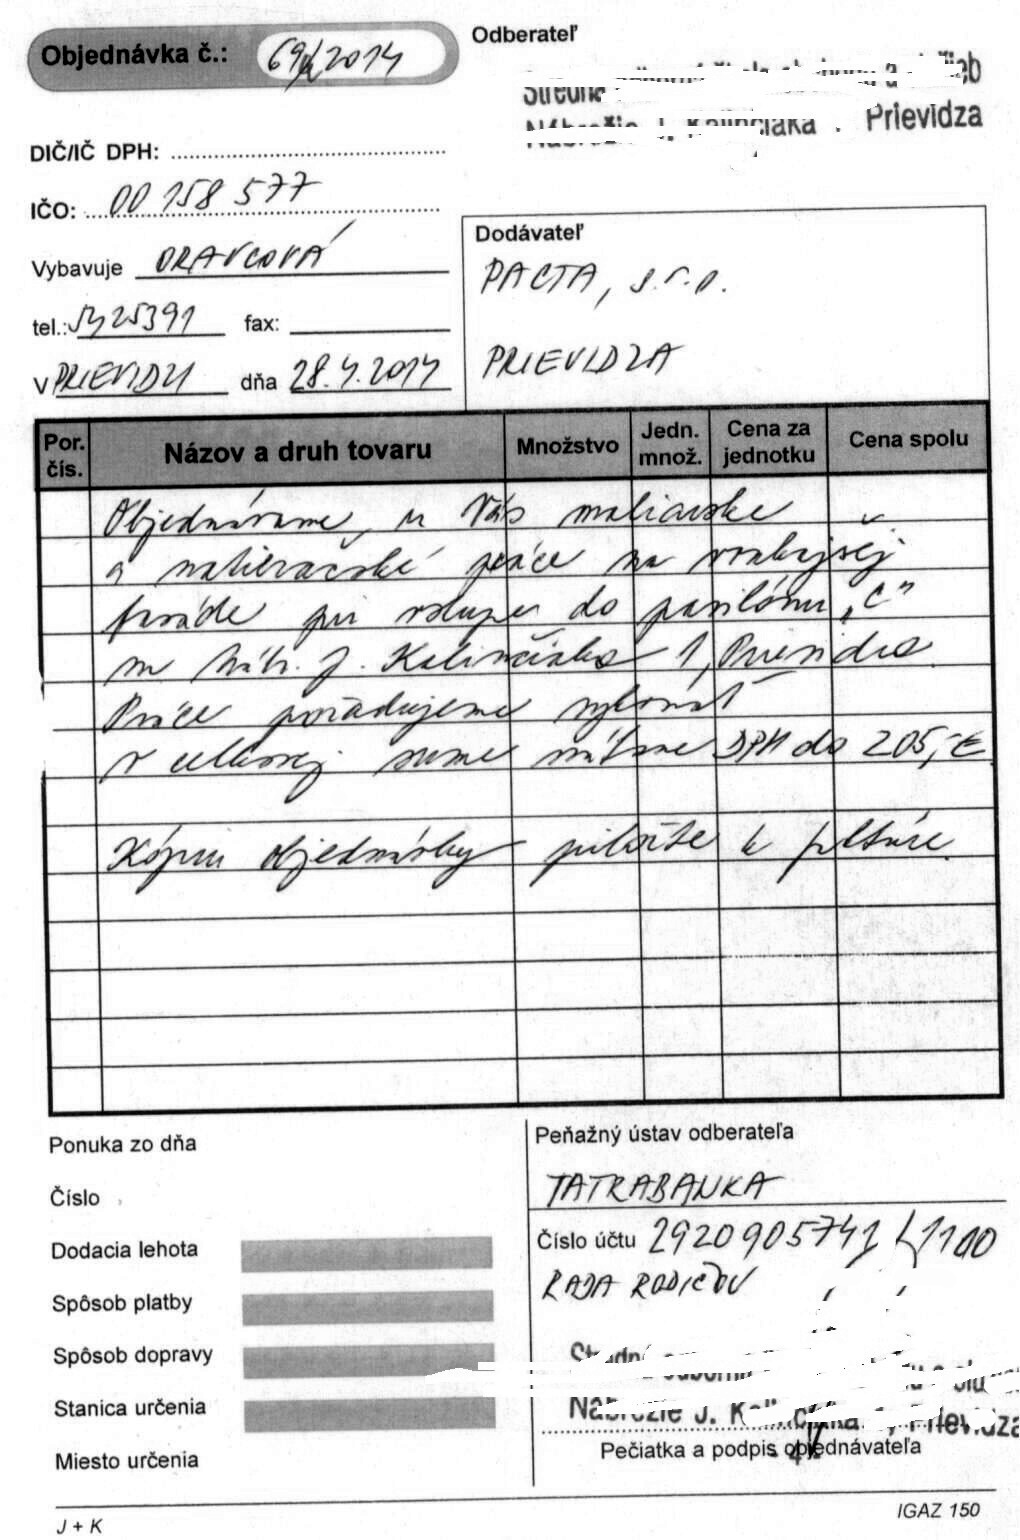 Objednávka č.: 69/2014
Odberateľ
Stredná
Nábrežie J. Kalinčiaka Prievidza
DIČ/IČ DPH:
IČO: 00 158 577
Vybavuje ORAVCOVÁ
Dodávateľ
PACTA, s.r.o.
tel.: 5425391 fax:
PRIEVIDZA
V PRIEVIDZI dňa 28.4.2014
Por. čís. Názov a druh tovaru Množstvo Jedn. množ. Cena za jednotku Cena spolu
Objednávame u Vás maliarske
a natieračské práce na vonkajšej
fasáde pri vstupe do pavilónu „C"
na Nábr. J. Kalinčiaka 1, Prievidza.
Práce požadujeme vykonať
v celkovej sume vrátane DPH do 205,-€.
Kópiu objednávky priložte k faktúre.
Ponuka zo dňa
Číslo
Dodacia lehota
Spôsob platby
Spôsob dopravy
Stanica určenia
Miesto určenia
Peňažný ústav odberateľa
TATRABANKA
Číslo účtu 2920905741/1100
RADA RODIČOV
Nábrežie J. Kalinčiaka , Prievidza
Pečiatka a podpis objednávateľa
J + K
IGAZ 150